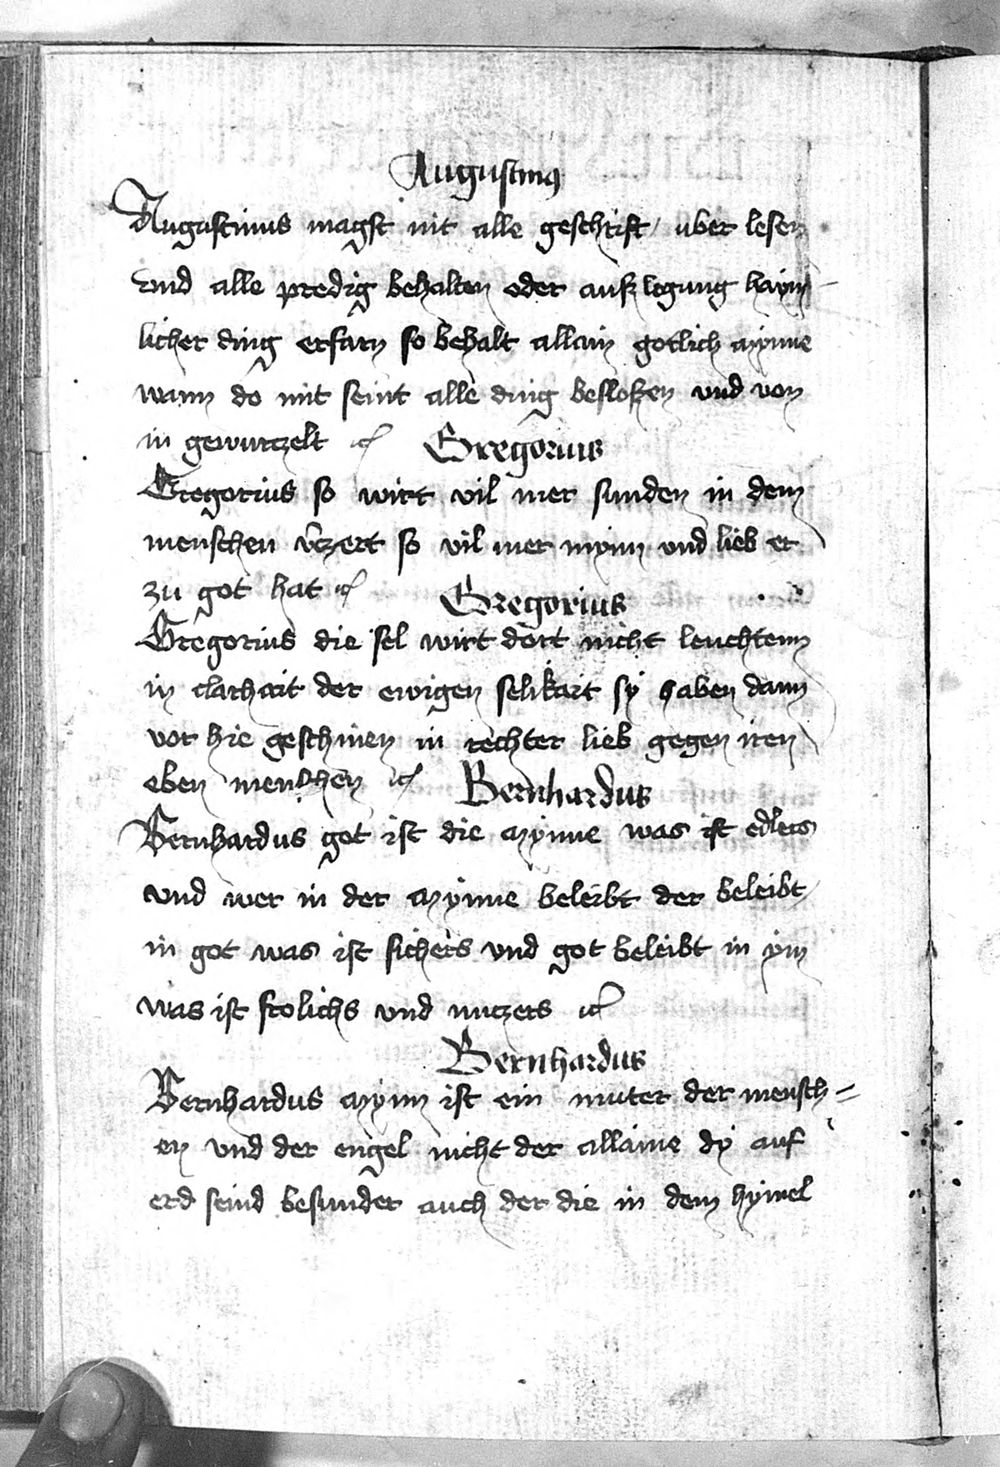 Augustinus
Augustinus magst nit alle geschrift uber lesen
vnd alle predig behalten oder auszlegung haym
licher ding erfarn so behalt allain gotlich mynne
wann do mit seint alle ding besloszen vnd von
in gewurczelt ꝛc Gregorius
Gregorius so wirt vil mer sunden in dem
menschen v̈czert so vil mer mynn vnd lieb er
zu got hat ꝛc Gregorius
Gregorius die sel wirt dort nicht leuchtenn
in clarhait der ewigen selikait sy haben dann
vor hie geschinen in rechter lieb gegen iren
eben menschen ꝛc Bernhardus
Bernhardus got ist die mynne was ist edlers
vnd wer in der mynne beleibt der beleibt
in got was ist sichers vnd got beleibt in ym
was ist frolichs vnd nuczers ꝛc
Bernhardus
Bernhardus mynn ist ein muter der mensch=
en vnd der engel nicht der allaine dy auf
erd seind besunder auch der die in dem hymel